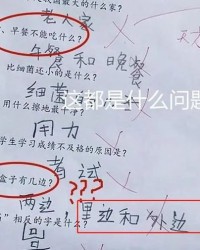 最大的什么家?
老人家
、早餐不能吃什么?
午餐和晚餐
比细菌还小的是什么?
细菌
这都是什么问题
用什么擦地最干净?
用力
学生学习成绩不及格的原因是?
考试
???
盒子有几边?
两边
里边和外边
”相反的字是什么?